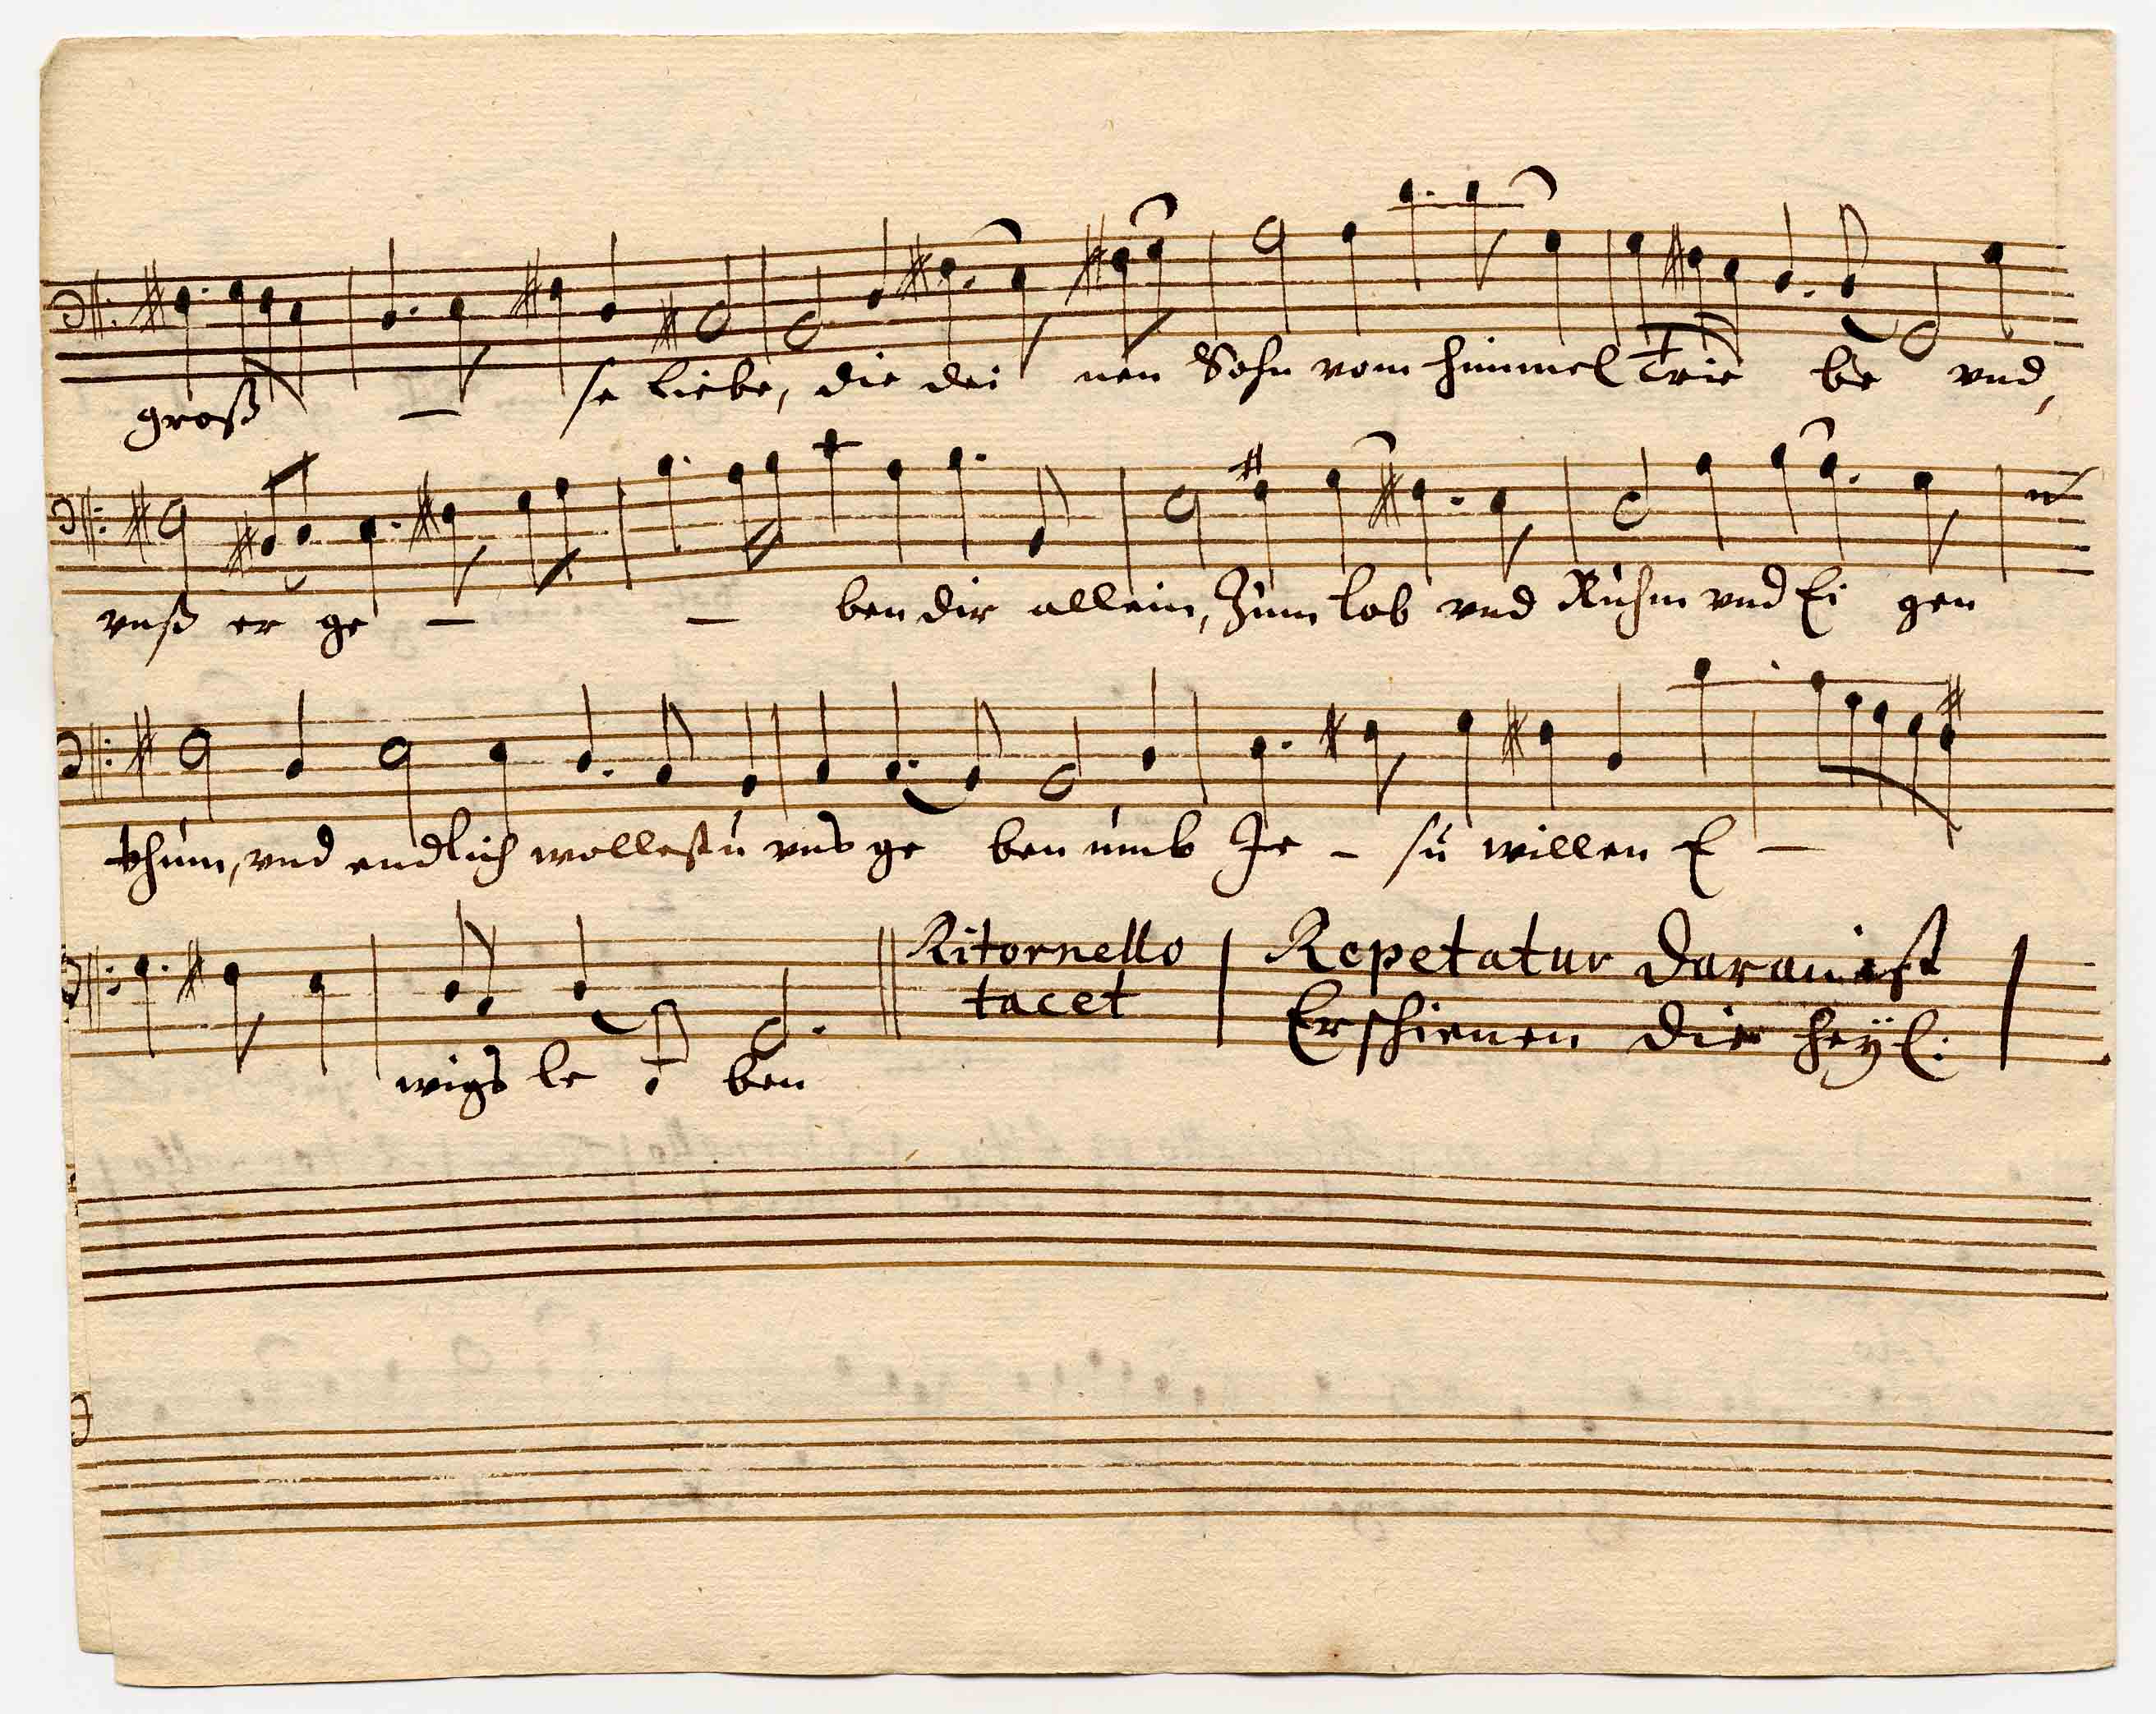 groß – se liebe, die dei nen Sohn vom himmel Trie be vnd,
vnß er ge – – ben dir allein, Zum lob vnd Ruhm vnd Ei gen
thum, vnd endlich wollestu vns ge ben umb Je – su willen E –
wigs le ben
Ritornello
tacet
Repetatur daran ist
Erschienen die heyl: